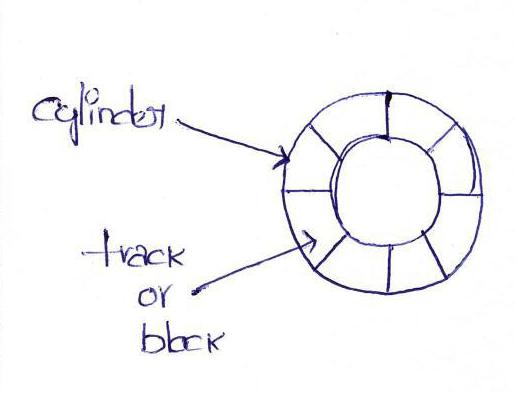 cylinder
track
or
block